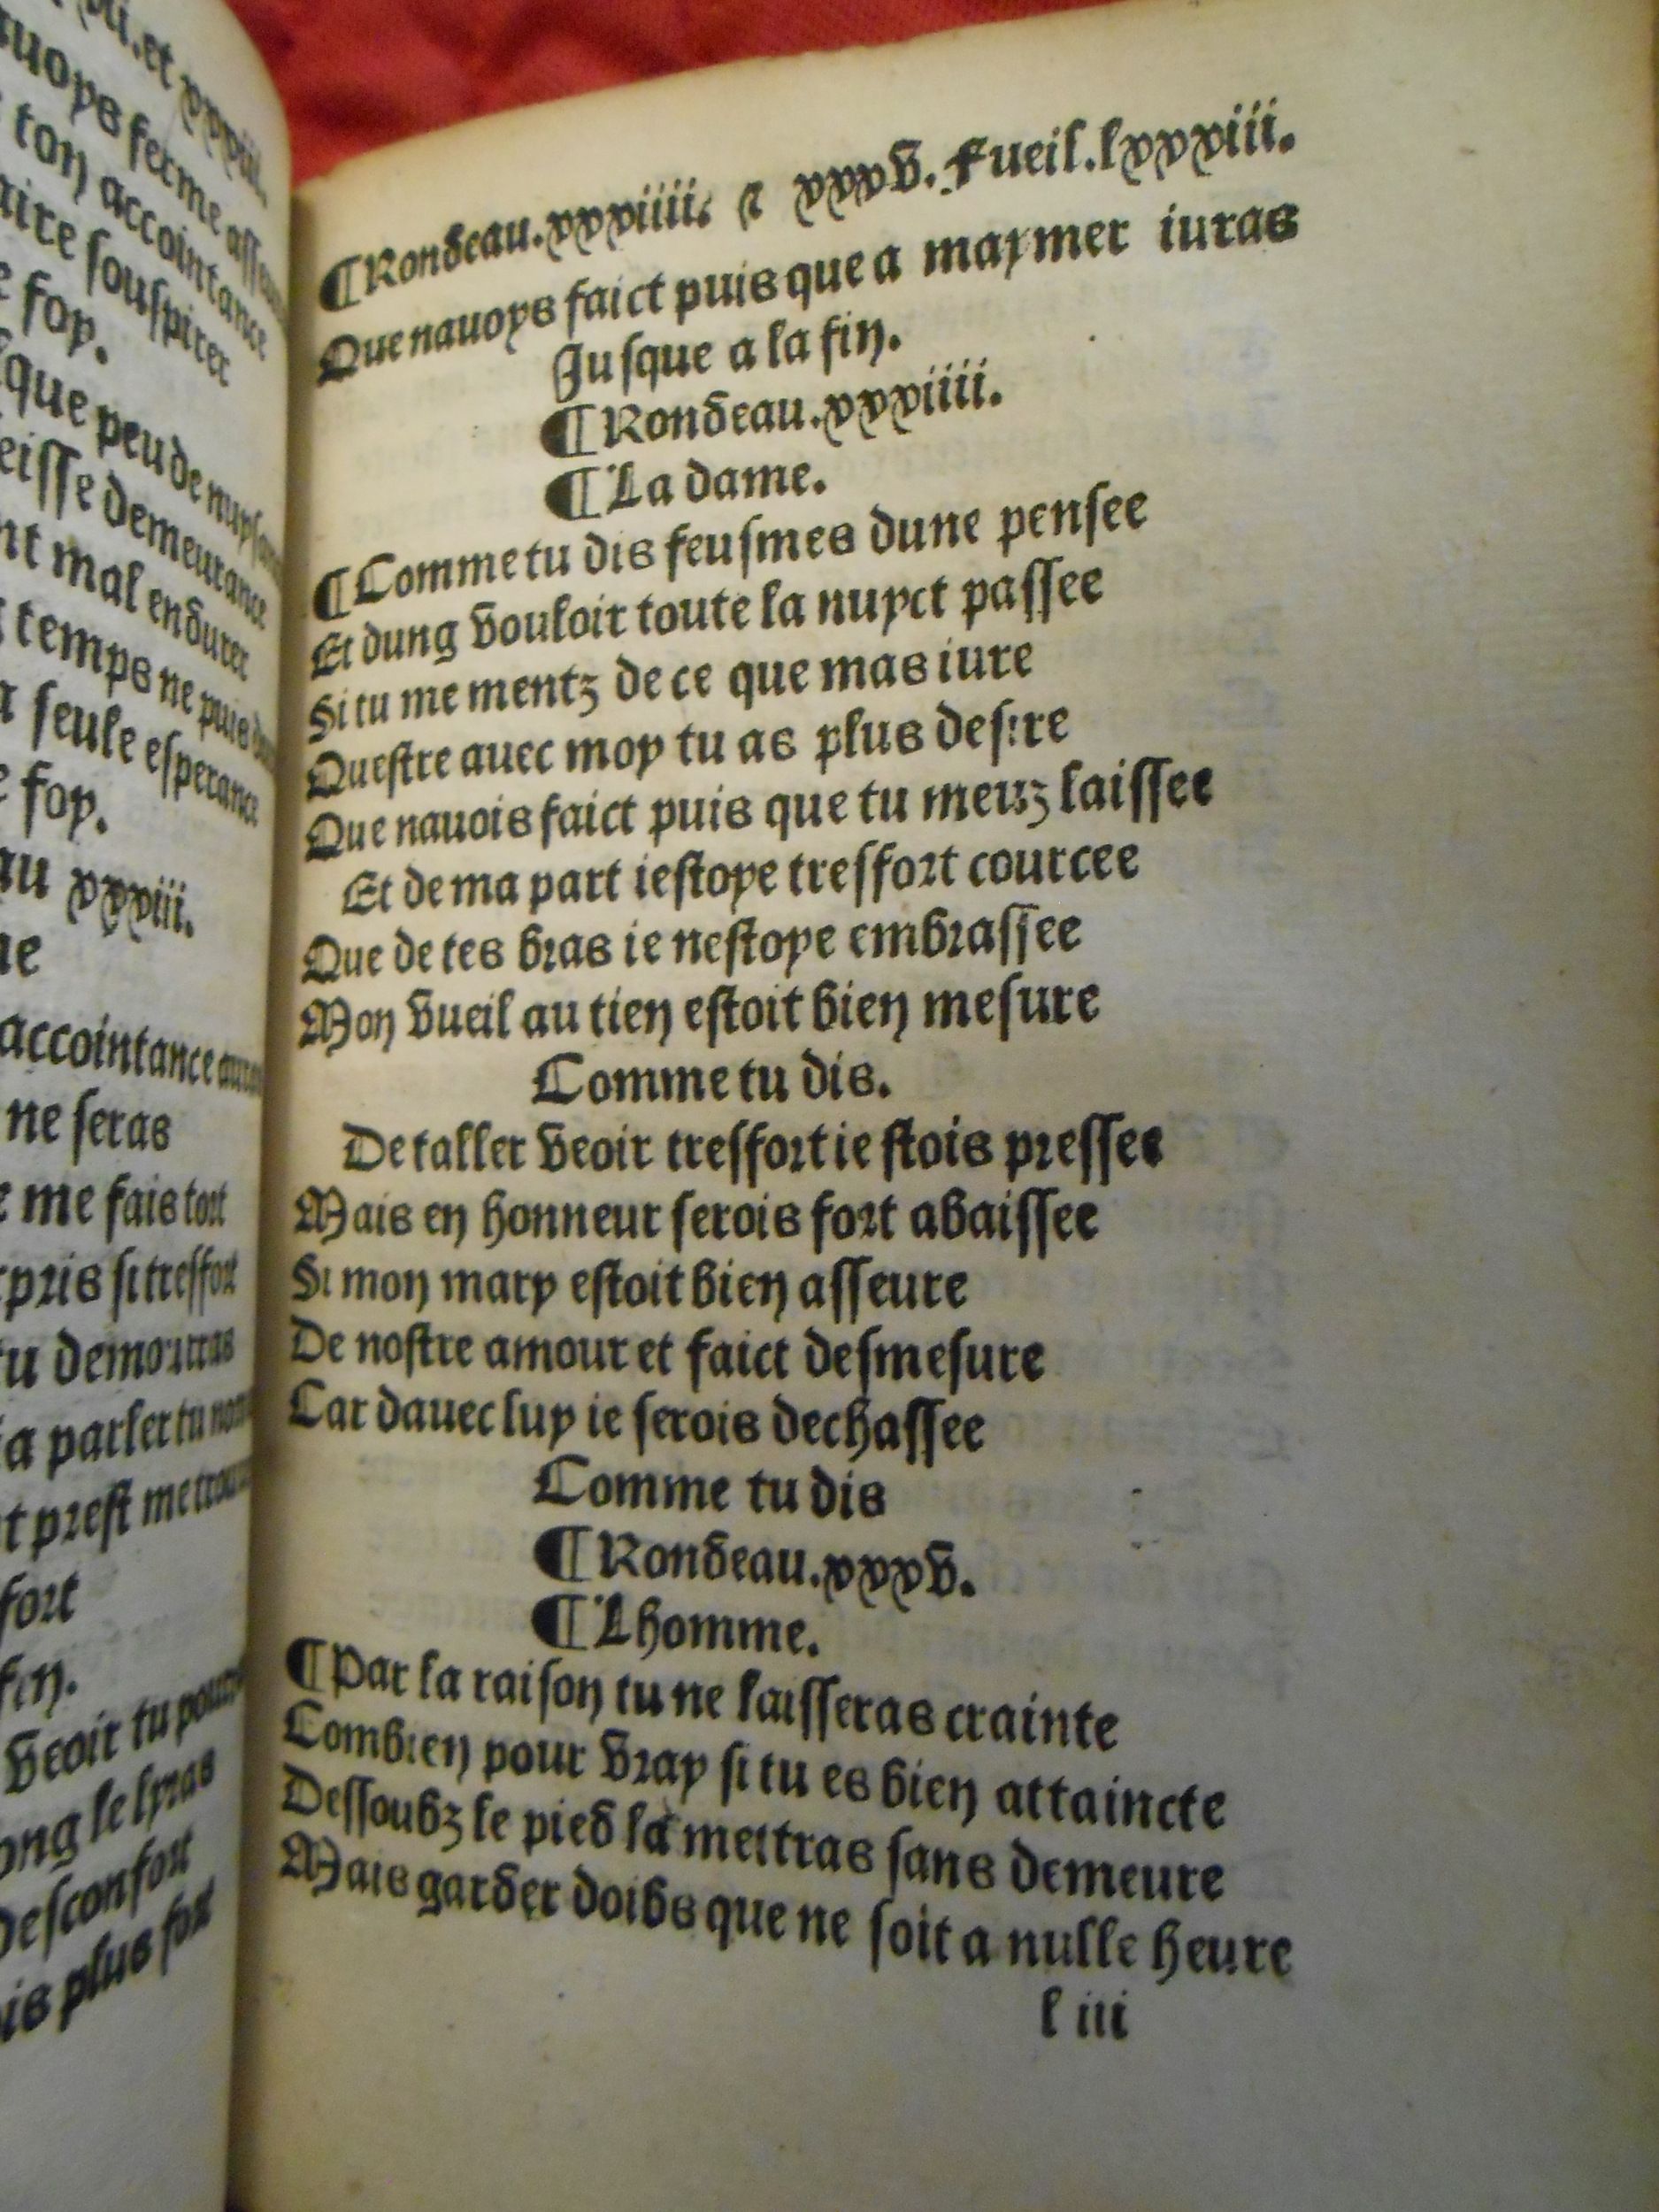 ui. et xxxiii.
auoys ferme
ton accointance
aire souspirer
e foy.
sque peu de
eisse demeurance
nt mal endurer
temps ne puis
a seule esperance
e foy.
au xxxiii.
ue
accointance
ne seras
e me fais tort
pris si tresfort
tu demourras
a parler tu
t prest me
fort
fin.
veoir tu
ong le
desconfort
is plus fort
¶Rondeau.xxxiiii. ⁊ xxxv. Fueil.lxxxiii.
Que nauoys faict puis que a maymer iuras
Jusque a la fin.
¶Rondeau.xxxiiii.
¶La dame.
¶Comme tu dis feusmes dune pensee
Et dung vouloir toute la nuyct passee
Si tu me mentz de ce que mas iure
Questre auec moy tu as plus desire
Que nauois faict puis que tu meuz laissee
Et de ma part iestoye tresfort courcee
Que de tes bras ie nestoye embrassee
Mon vueil au tien estoit bien mesure
Comme tu dis.
De taller veoir tresfort ie stois pressee
Mais en honneur serois fort abaissee
Si mon mary estoit bien asseure
De nostre amour et faict desmesure
Car dauec luy ie serois dechassee
Comme tu dis
¶Rondeau.xxxv.
¶Lhomme.
¶Par la raison tu ne laisseras crainte
Combien pour vray si tu es bien attaincte
Dessoubz le pied la mettras sans demeure
Mais garder doibs que ne soit a nulle heure
l iii